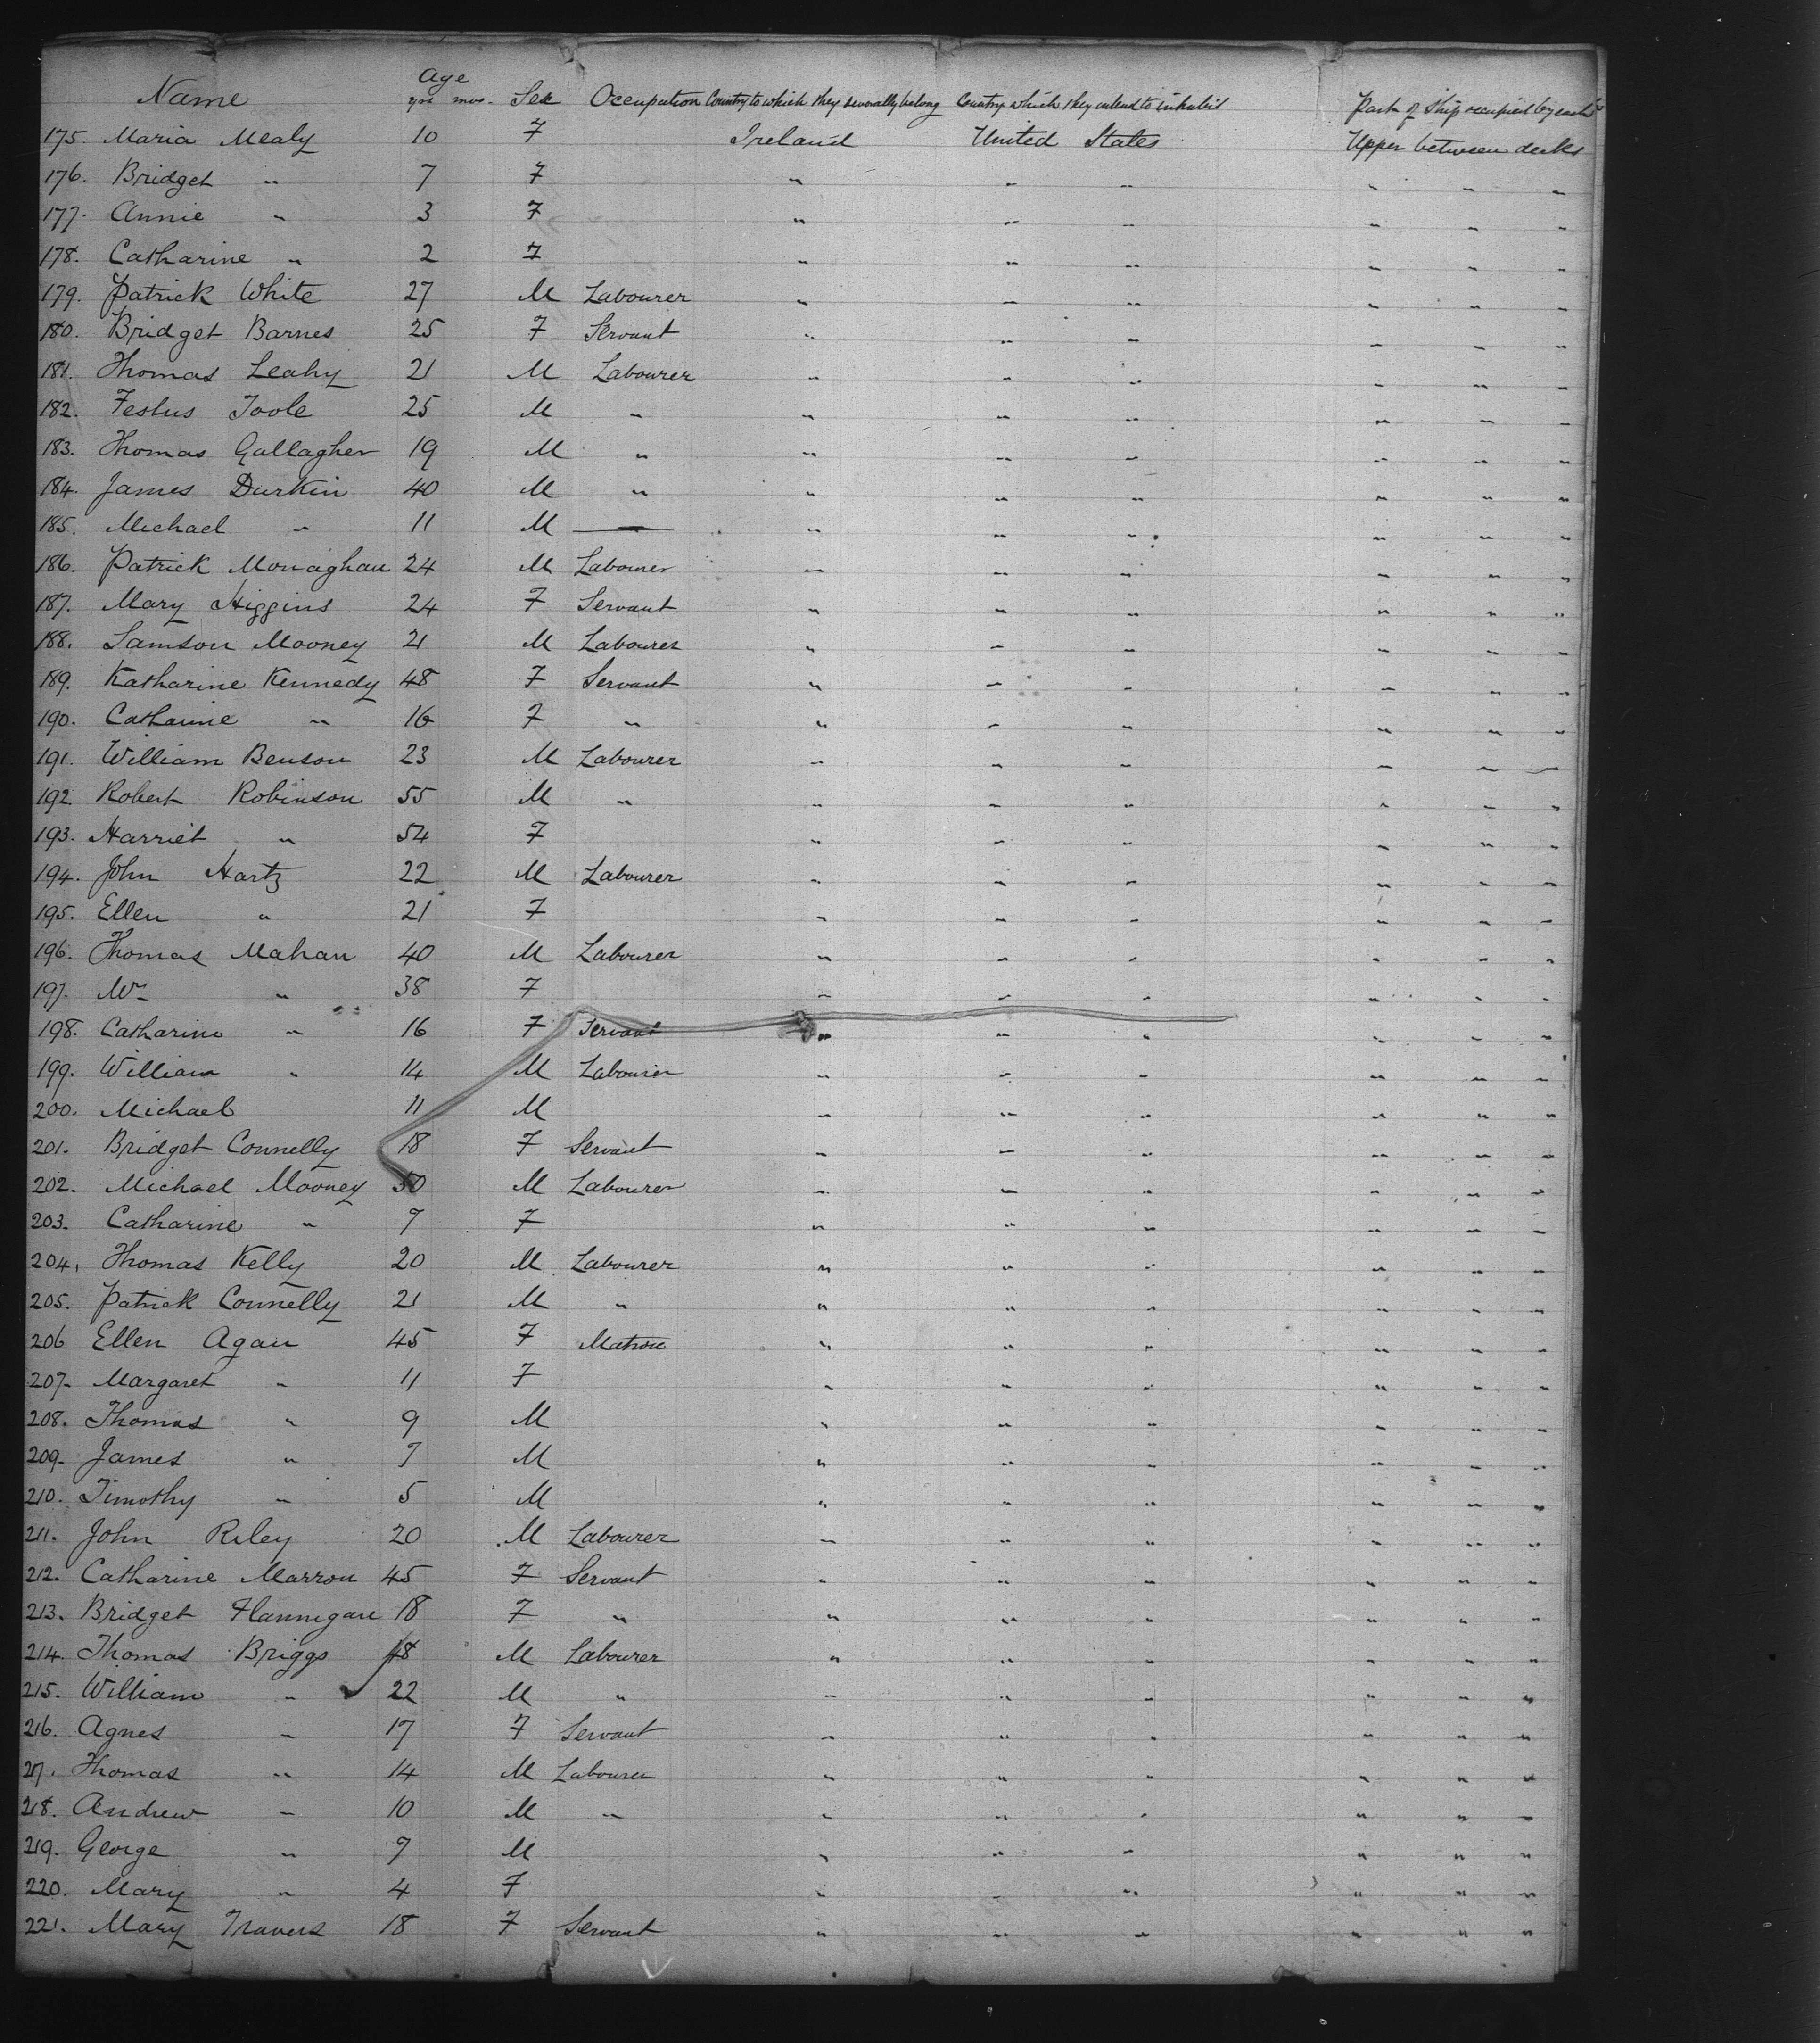 Name Age yrs mos. Sex Occupation Country to which they severally belong Country which they intend to inhabit Part of Ship occupied by each
175. Maria Mealy 10 F Ireland United States Upper between decks
176. Bridget " 7 F " " " " " "
177. Annie " 3 F " " " " " "
178. Catharine " 2 F " " " " " "
179. Patrick White 27 M Labourer " " " " " "
180. Bridget Barnes 25 F Servant " " " " " "
181. Thomas Leahy 21 M Labourer " " " " " "
182. Festus Toole 25 M " " " " " " "
183. Thomas Gallagher 19 M " " " " " " "
184. James Durkin 40 M " " " " " " "
185. Michael " 11 M — " " " " " "
186. Patrick Monaghan 24 M Labourer " " " " " "
187. Mary Higgins 24 F Servant " " " " " "
188. Samson Mooney 21 M Labourer " " " " " "
189. Katharine Kennedy 48 F Servant " " " " " "
190. Catharine " 16 F " " " " " " "
191. William Benson 23 M Labourer " " " " " "
192. Robert Robinson 55 M " " " " " " "
193. Harriet " 54 F " " " " " "
194. John Hartz 22 M Labourer " " " " " "
195. Ellen " 21 F " " " " " "
196. Thomas Mahan 40 M Labourer " " " " " "
197. Mrs " 38 F " " " " " "
198. Catharine " 16 F Servant " " " " " "
199. William " 14 M Labourer " " " " " "
200. Michael 11 M " " " " " "
201. Bridget Connelly 18 F Servant " " " " " "
202. Michael Mooney 50 M Labourer " " " " " "
203. Catharine " 7 F " " " " " "
204. Thomas Kelly 20 M Labourer " " " " " "
205. Patrick Connelly 21 M " " " " " " "
206 Ellen Agan 45 F Matron " " " " " "
207. Margaret " 11 F " " " " " "
208. Thomas " 9 M " " " " " "
209. James " 7 M " " " " " "
210. Timothy " 5 M " " " " " "
211. John Riley 20 M Labourer " " " " " "
212. Catharine Marron 45 F Servant " " " " " "
213. Bridget Flannigan 18 F " " " " " " "
214. Thomas Briggs 48 M Labourer " " " " " "
215. William " 22 M " " " " " " "
216. Agnes " 17 F Servant " " " " " "
217. Thomas " 14 M Labourer " " " " " "
218. Andrew " 10 M " " " " " " "
219. George " 7 M " " " " " "
220. Mary " 4 F " " " " " "
221. Mary Travers 18 F Servant " " " " " "